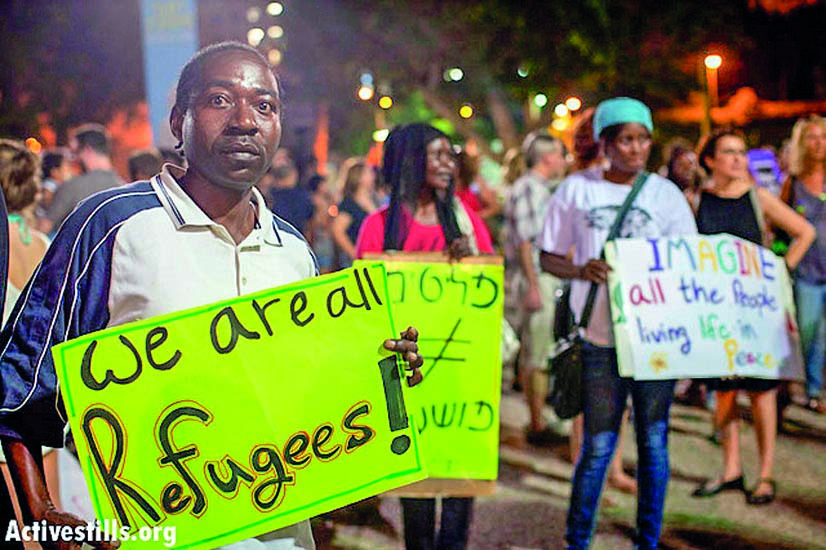 we are all
Refugees!
פליטי
≠
פושע
IMAGINE
all the People
living life in
Peace
Activestills.org